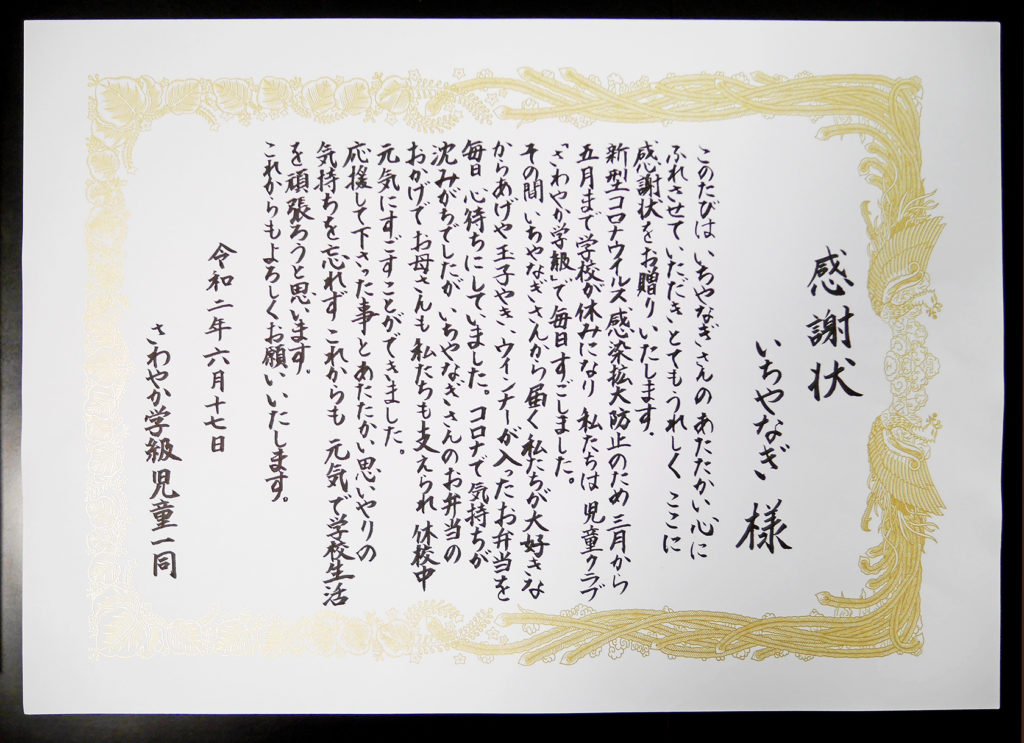 感謝状
いちやなぎ 様
このたびは いちやなぎさんの あたたかい心に
ふれさせて いただき とてもうれしく ここに
感謝状をお贈りいたします.
新型コロナウイルス感染拡大防止のため 三月から
五月まで学校が休みになり 私たちは 児童クラブ
「さわやか学級」で毎日すごしました。
その間 いちやなぎさんから届く私たちが大好きな
からあげや玉子やき、ウインナーが入ったお弁当を
毎日 心待ちにしていました。コロナで気持ちが
沈みがちでしたが いちやなぎさんのお弁当の
おかげで お母さんも 私たちも支えられ 休校中
元気にすごすことができました。
応援して下さった事とあたたかい思いやりの
気持ちを忘れず これからも 元気で学校生活
を頑張ろうと思います.
これからもよろしくお願いいたします。
令和二年六月十七日
さわやか学級児童一同